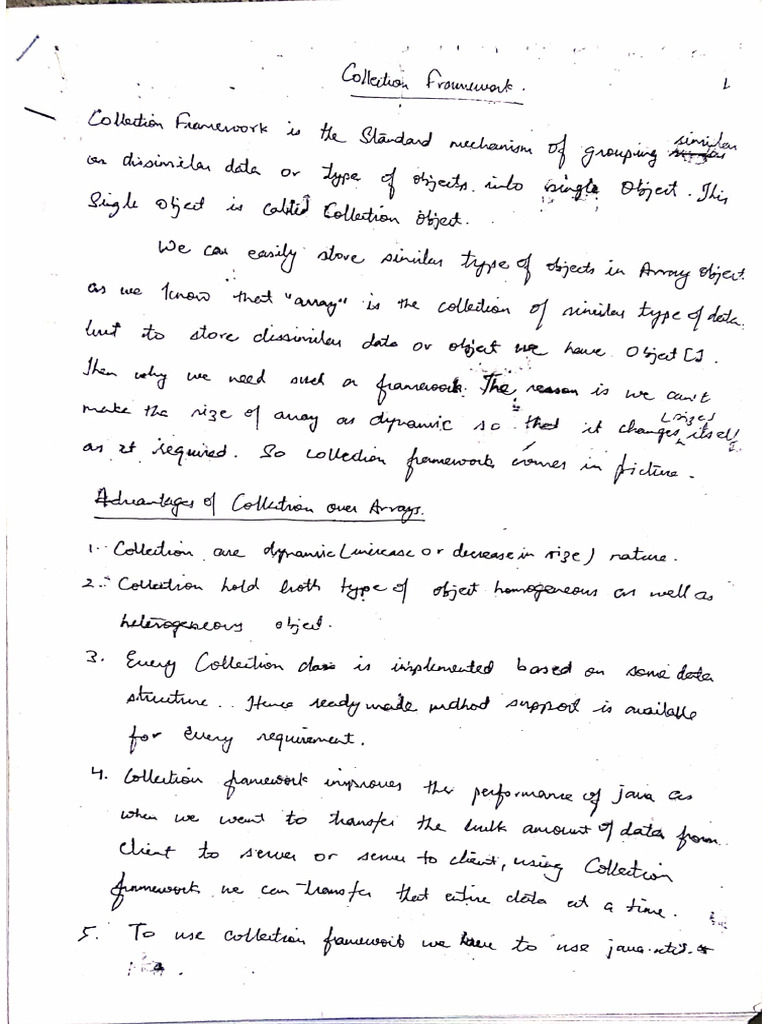 Collection Framework. 1
Collection Framework is the Standard mechanism of grouping similar
or dissimilar data or type of objects into single Object. This
Single object is called Collection object.
We can easily store similar type of objects in Array object
as we know that "array" is the collection of similar type of data.
but to store dissimilar data or object we have Object [].
Then why we need such a framework. The reason is we can't
make the size of array as dynamic so that it changes (size) itself
as it required. So collection framework comes in picture.
Advantages of Collection over Arrays.
1. Collection are dynamic (increase or decrease in size) nature.
2. Collection hold both type of object homogeneous as well as
heterogeneous object.
3. Every Collection class is implemented based on some data
structure. Hence readymade method support is available
for every requirement.
4. Collection framework improves the performance of java as
when we want to transfer the bulk amount of data from
client to server or server to client, using Collection
framework we can transfer that entire data at a time.
5. To use collection framework we have to use java.util.*